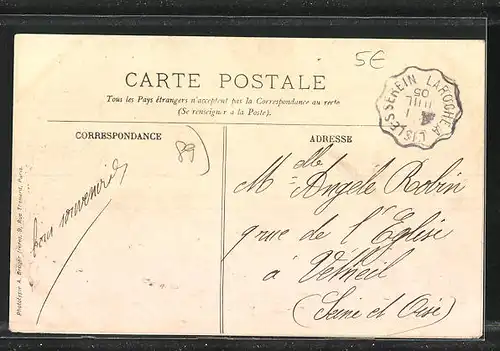 5€
CARTE POSTALE
Tous les Pays étrangers n'acceptent pas la Correspondance au recto
(Se renseigner a la Poste).
LAROCHE A L'ISLE-S-SEREIN
1
JUIL
05
CORRESPONDANCE
ADRESSE
89
bon souvenir
Mdlle Angèle Robin
rue de l'Église
à Verneuil
(Seine et Oise)
Phototypie A. Breger frères, 9, Rue Thénard, Paris.